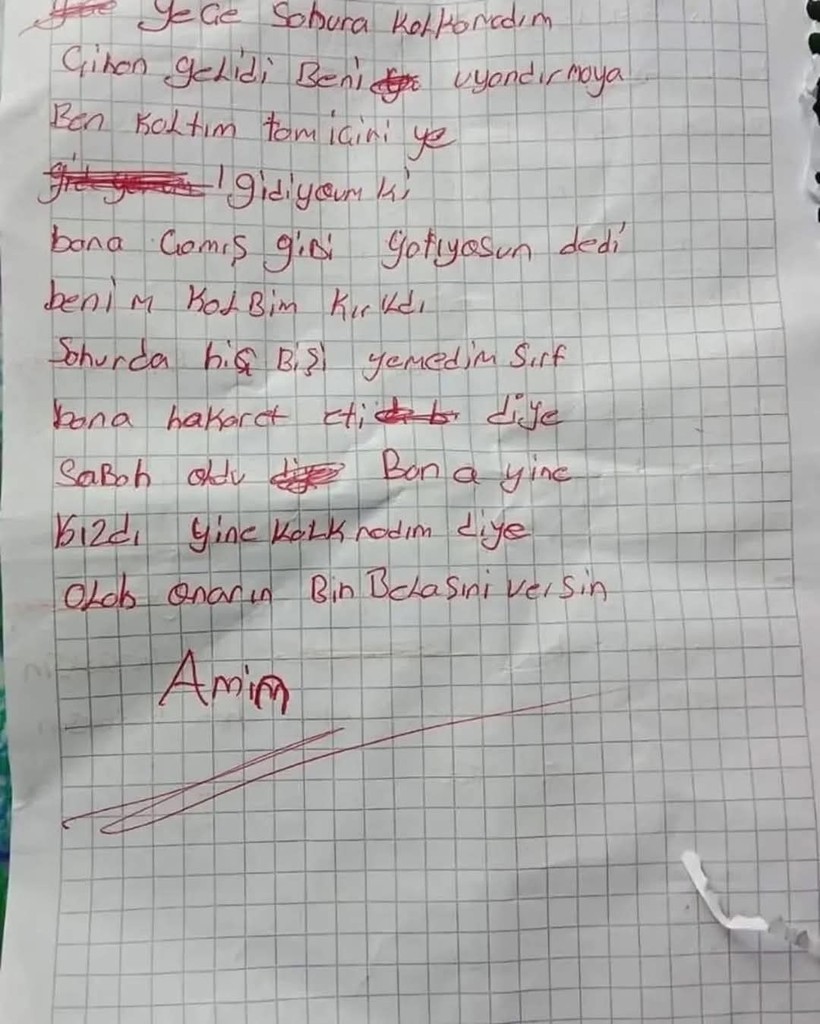 yece Sohura KaLkamadım
Cihan geLidi Beni uyandırmaya
Ben KaLtım tam içini ye
gidiyoum ki
bana Camış gibi yatıyosun dedi
benim KaLBim KırıLdı
Sohurda hiç Bişi yemedim Sırf
bana hakaret eti diye
SaBah oldu Bana yine
Kızdı yine KaLkmadım diye
OLah onarın Bin BeLasıni versin
Amim